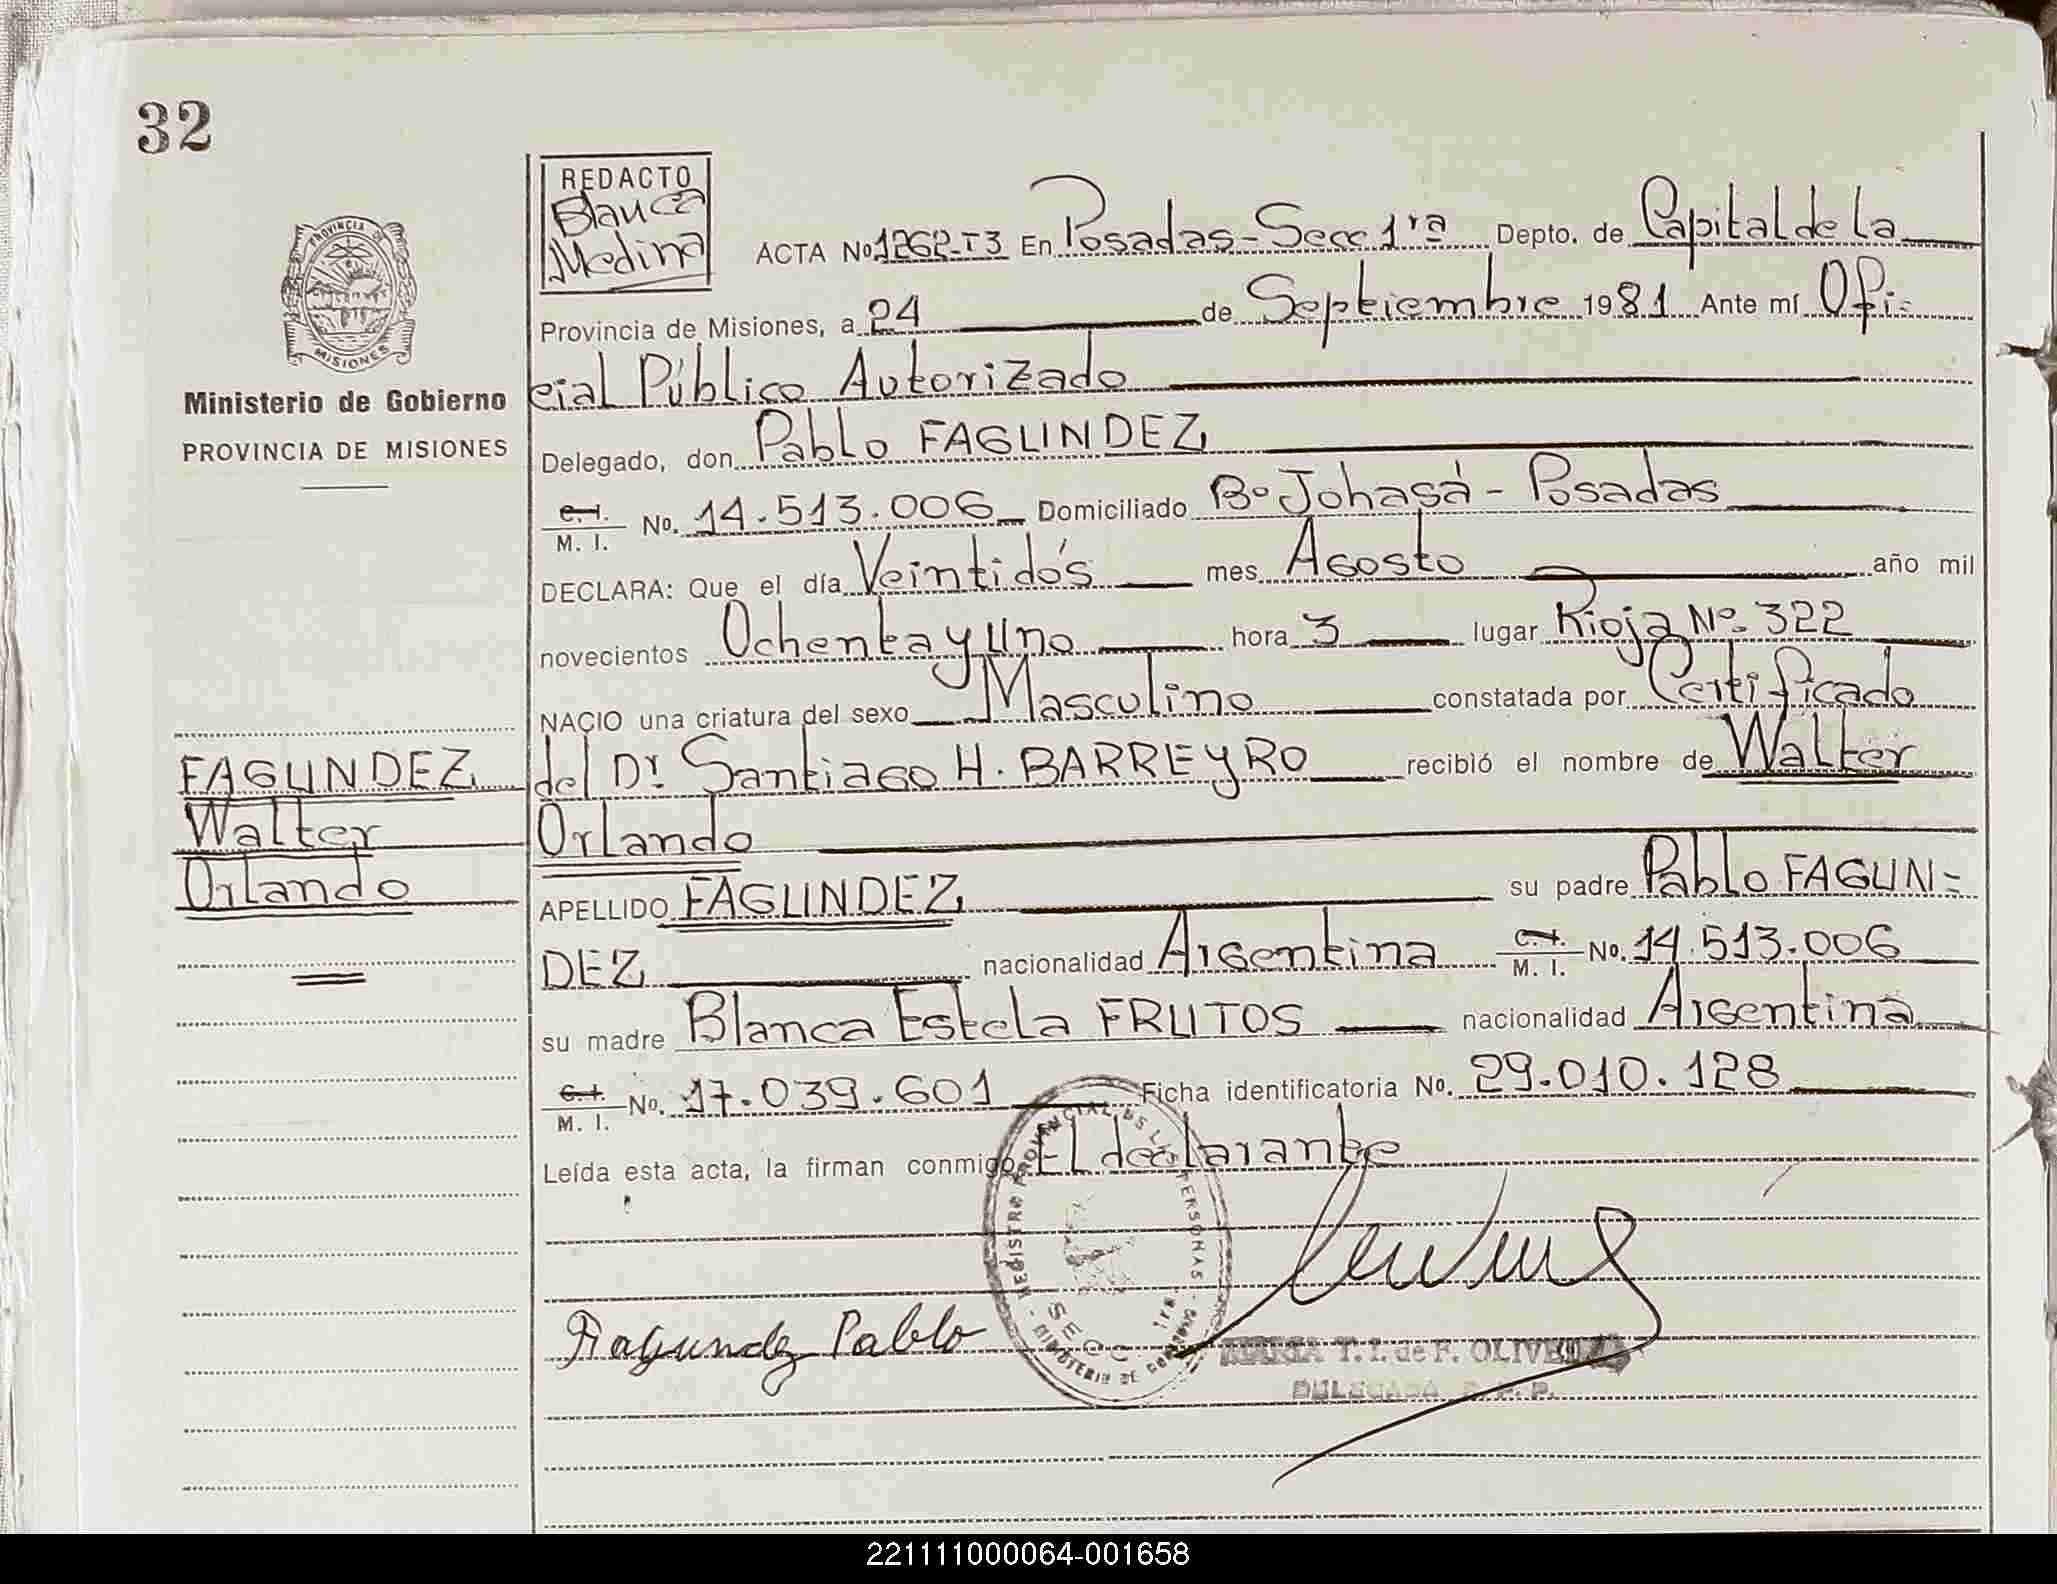 32
REDACTO
Blanca
Medina
ACTA No 1262-T3 En Posadas - Secc 1ra Depto. de Capital de La
Provincia de Misiones, a 24 de Septiembre 1981 Ante mí Ofi=
cial Público Autorizado
Delegado, don Pablo FAGUNDEZ
C.I. M. I. No. 14.513.006 Domiciliado Bº Johasá - Posadas
DECLARA: Que el día Veintidós mes Agosto año mil
novecientos Ochenta y Uno hora 3 lugar Rioja Nº 322
NACIO una criatura del sexo Masculino constatada por Certificado
del Dr. Santiago H. BARREYRO recibió el nombre de Walter
Orlando
APELLIDO FAGUNDEZ su padre Pablo FAGUN=
DEZ nacionalidad Argentina C.I. M. I. No. 14.513.006
su madre Blanca Estela FRUTOS nacionalidad Argentina
C.I. M. I. No. 17.039.601 Ficha identificatoria No. 29.010.128
Leída esta acta, la firman conmigo El declarante
Fagundez Pablo
REGISTRO PROVINCIAL DE LAS PERSONAS
SECC. 1ra.
MINISTERIO DE GOBIERNO
T. I. de F. OLIVEIRA
DELEGADA
PROVINCIA DE
MISIONES
Ministerio de Gobierno
PROVINCIA DE MISIONES
FAGUNDEZ
Walter
Orlando
221111000064-001658